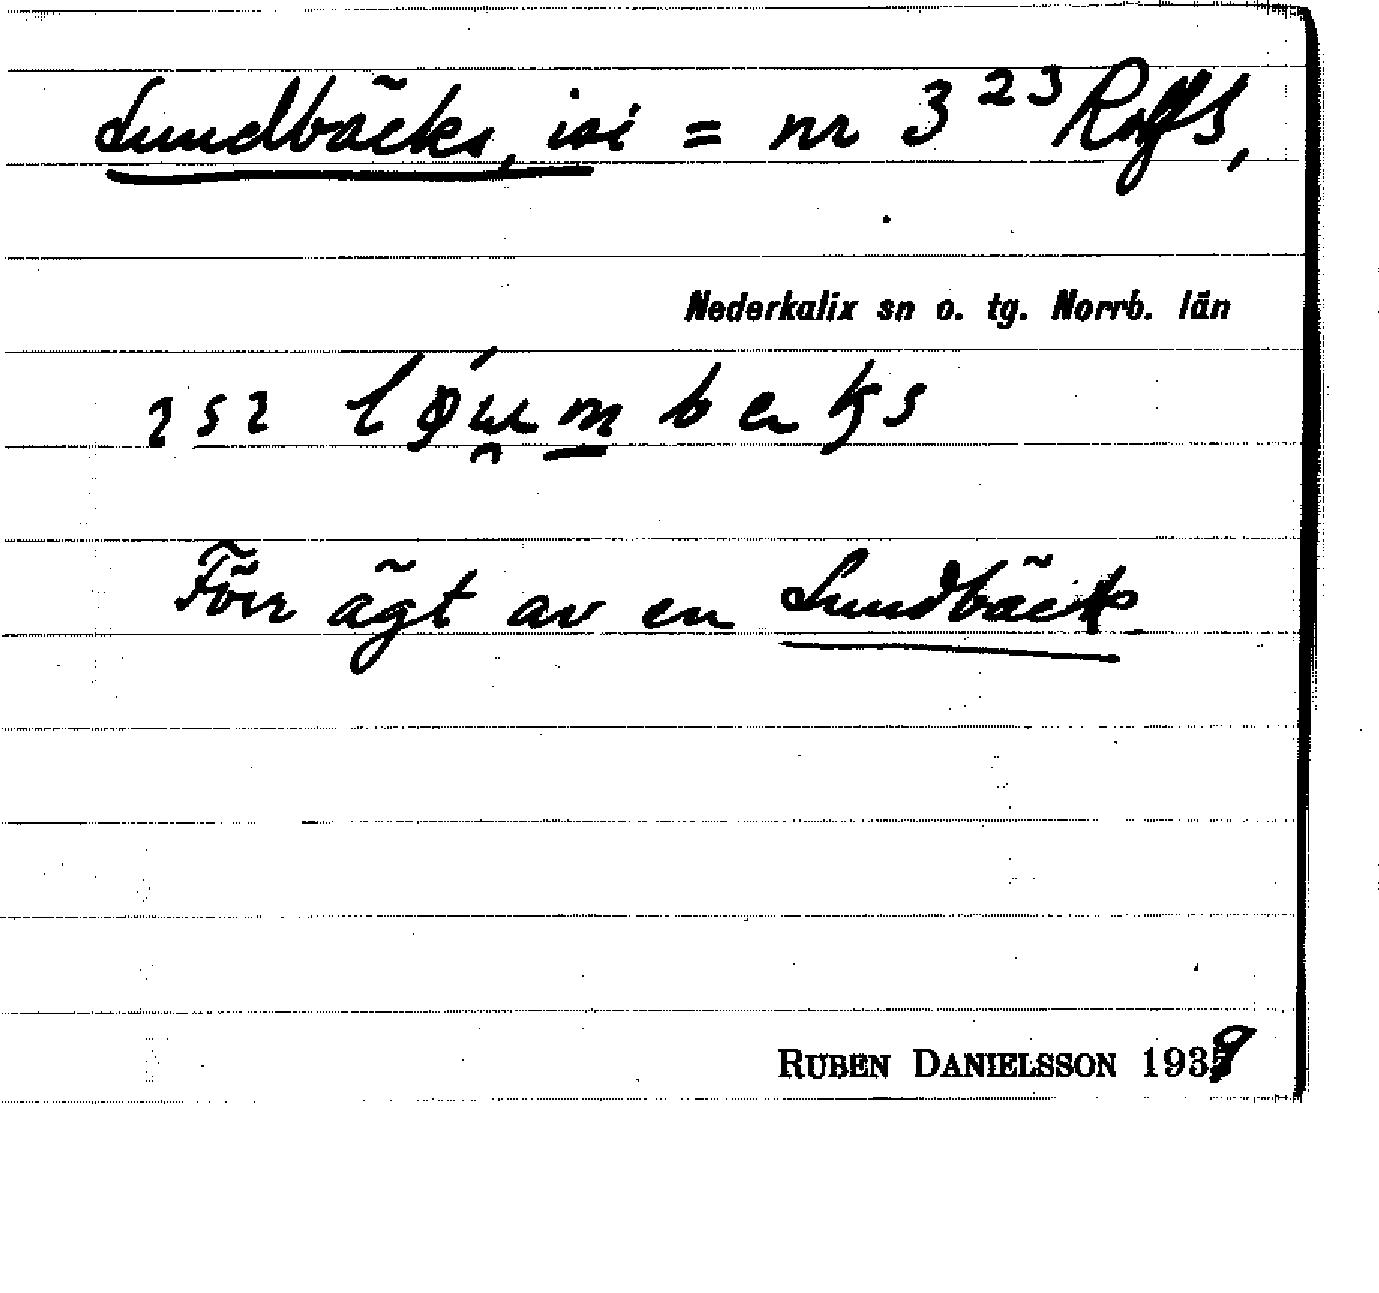 Lundbäcks, isi = nr 3²³ Rolfs,
Nederkalix sn o. tg. Norrb. län
Förr ägt av en Lundbäck
RUBEN DANIELSSON 1939